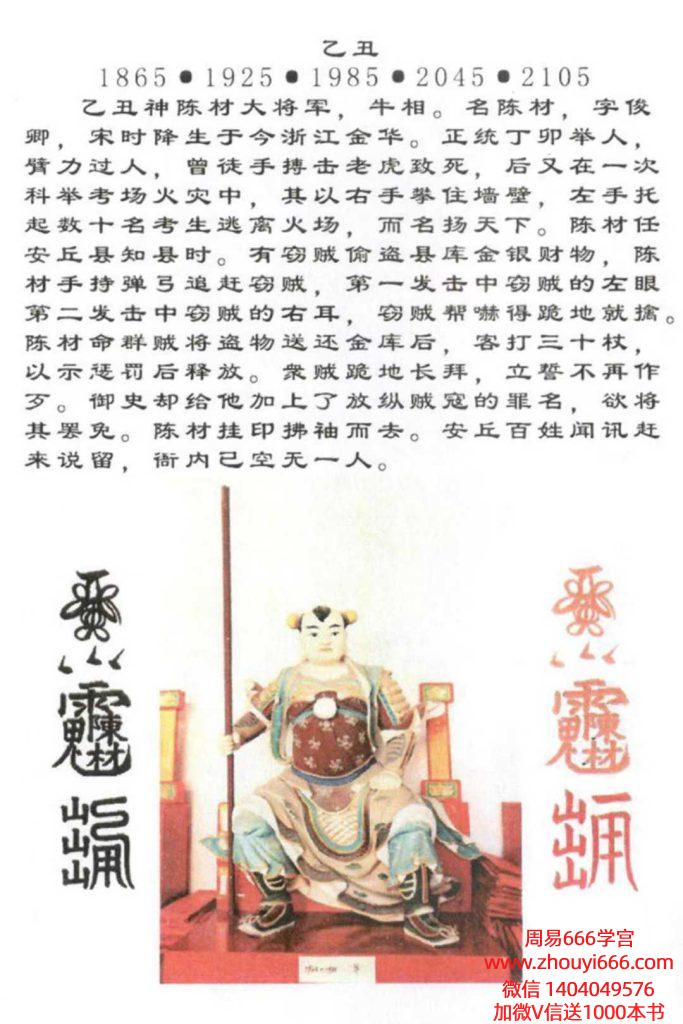 乙丑
1865●1925●1985●2045●2105
乙丑神陈材大将军，牛相。名陈材，字俊
卿，宋时降生于今浙江金华。正统丁卯举人，
臂力过人，曾徒手搏击老虎致死，后又在一次
科举考场火灾中，其以右手攀住墙壁，左手托
起数十名考生逃离火场，而名扬天下。陈材任
安丘县知县时。有窃贼偷盗县库金银财物，陈
材手持弹弓追赶窃贼，第一发击中窃贼的左眼
第二发击中窃贼的右耳，窃贼帮嚇得跪地就擒。
陈材命群贼将盗物送还金库后，客打三十杖，
以示惩罚后释放。衆贼跪地长拜，立誓不再作
歹。御史却给他加上了放纵贼寇的罪名，欲将
其罢免。陈材挂印拂袖而去。安丘百姓闻讯赶
来说留，衙内已空无一人。
周易666学宫
www.zhouyi666.com
微信 1404049576
加微V信送1000本书